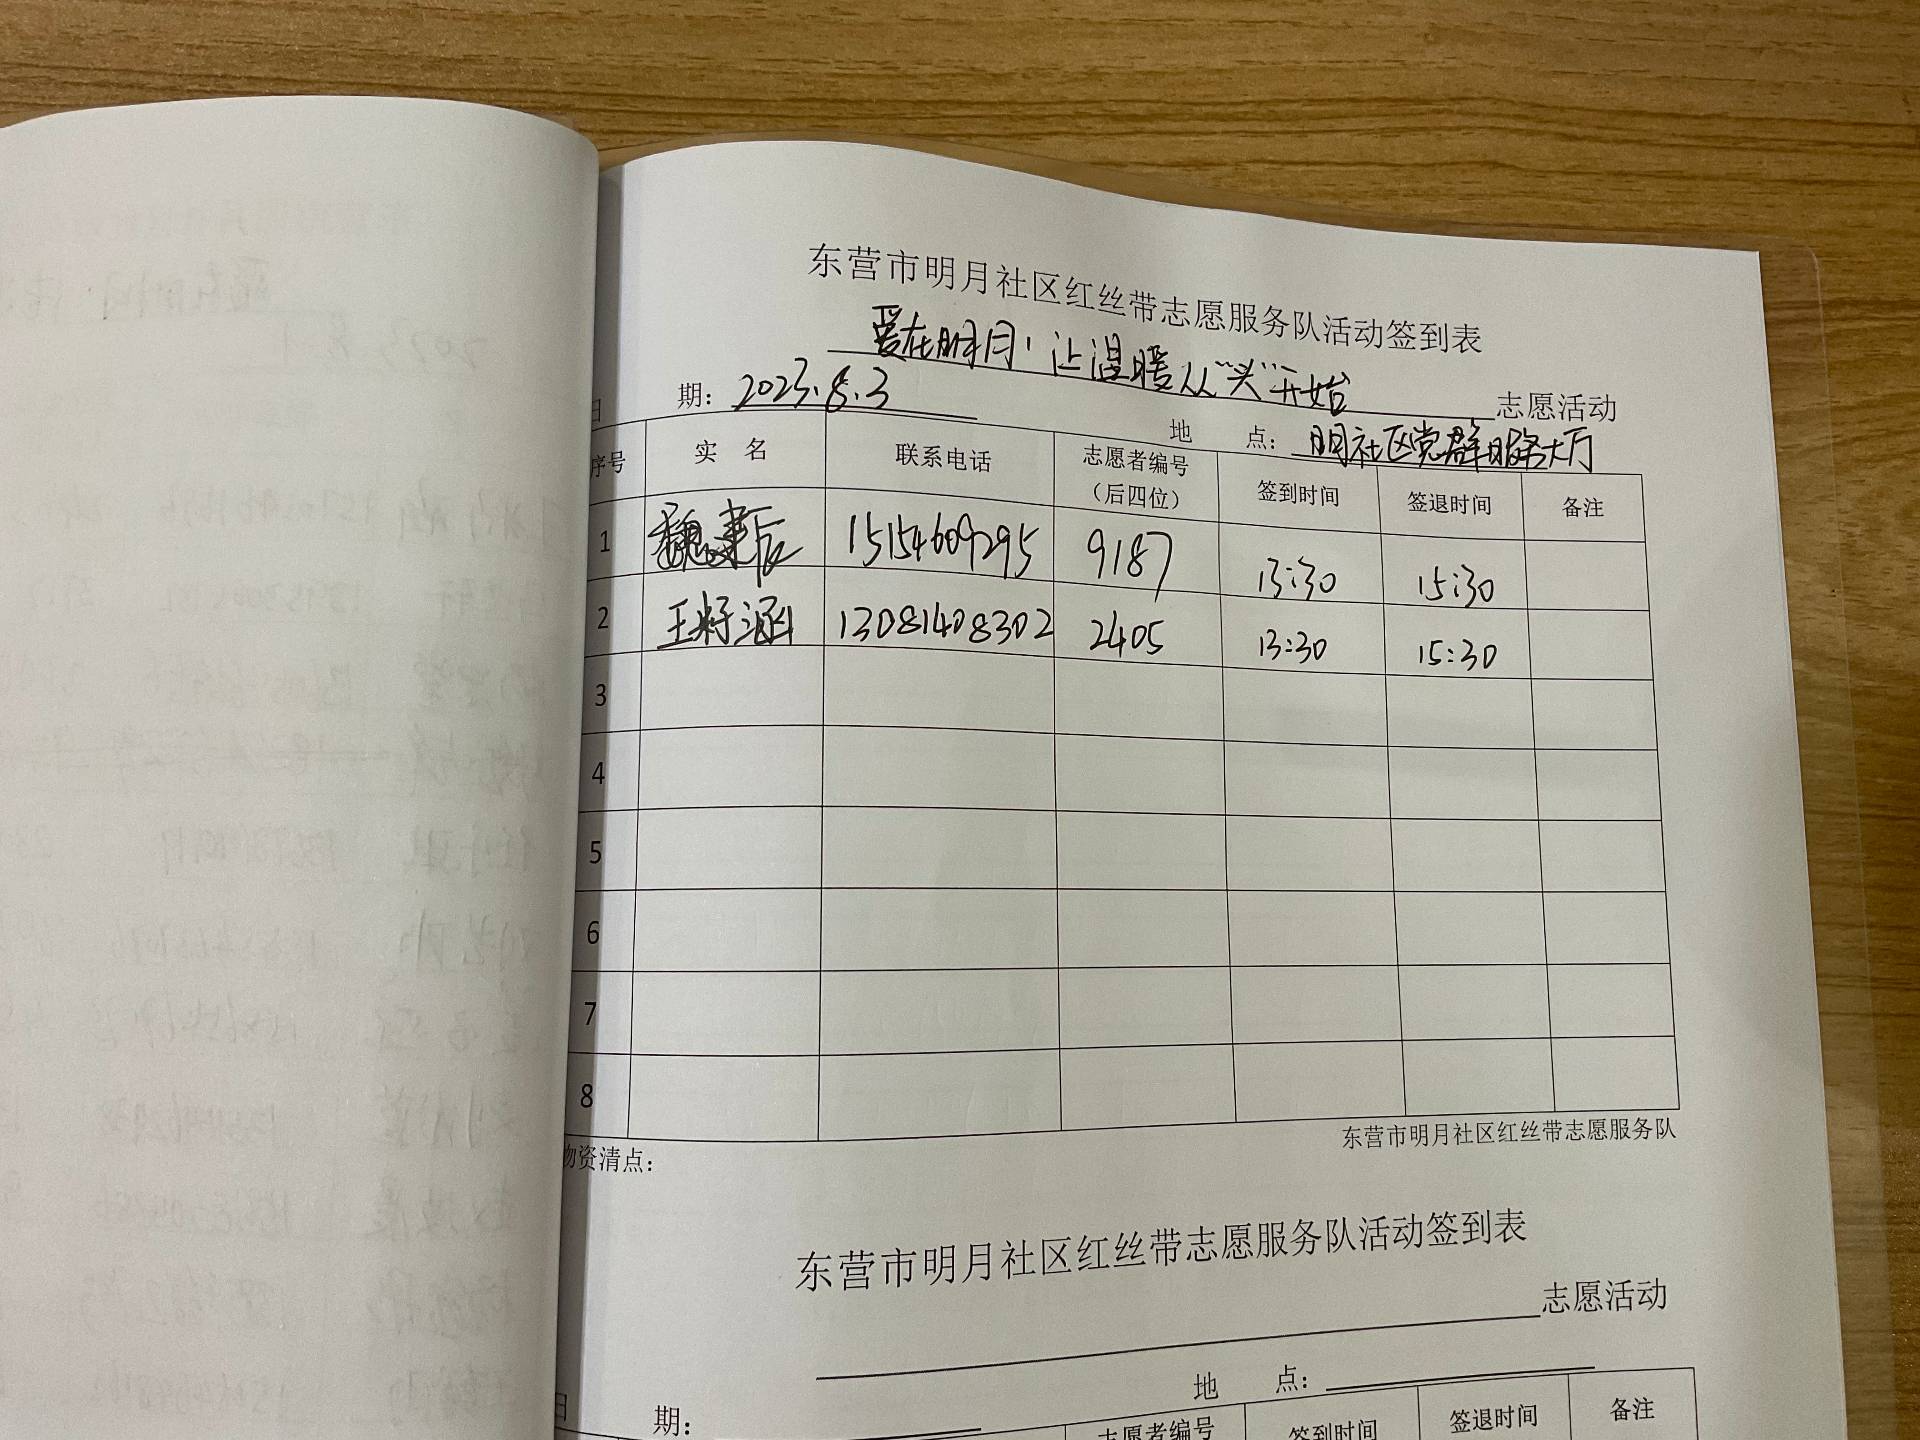 东营市明月社区红丝带志愿服务队活动签到表
爱在明月·让温暖从“头”开始 志愿活动
日 期: 2023.8.3
地 点: 明月社区党群服务大厅
序号 实 名 联系电话 志愿者编号（后四位） 签到时间 签退时间 备注
1 魏建辰 15154609295 9187 13:30 15:30
2 王籽涵 13081408302 2405 13:30 15:30
3
4
5
6
7
8
东营市明月社区红丝带志愿服务队
物资清点:
东营市明月社区红丝带志愿服务队活动签到表
志愿活动
地 点:
日 期:
志愿者编号 签到时间 签退时间 备注